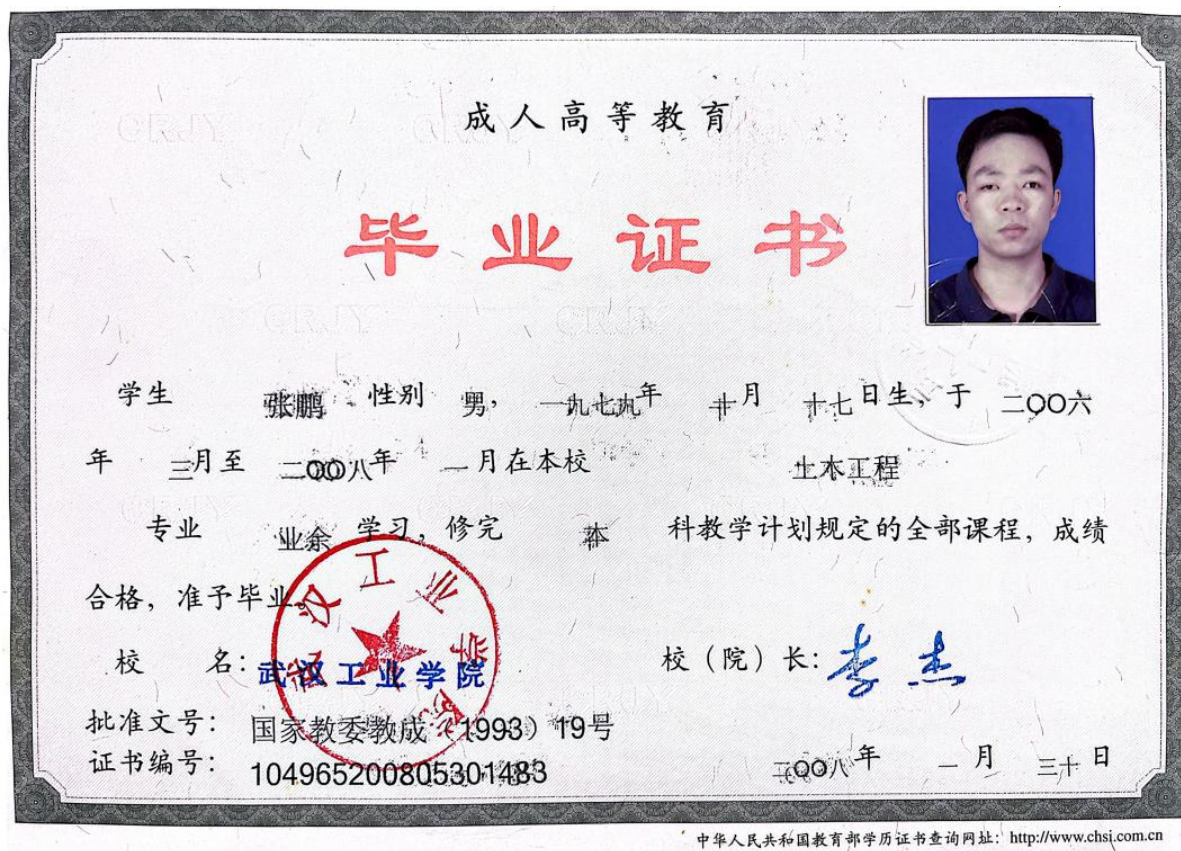 成人高等教育
毕业证书
学生 张鹏 性别 男, 一九七九年 月 十七日生,于 二〇〇六
年 三月至 二〇〇八年 一月在本校 土木工程
专业 业余 学习,修完 本 科教学计划规定的全部课程,成绩
合格,准予毕业。
校 名:武汉工业学院 校(院)长:李杰
武汉工业学院
批准文号:国家教委教成(1993)19号
证书编号:104965200805301483
二〇〇八年 一月 三十日
中华人民共和国教育部学历证书查询网址:http://www.chsi.com.cn